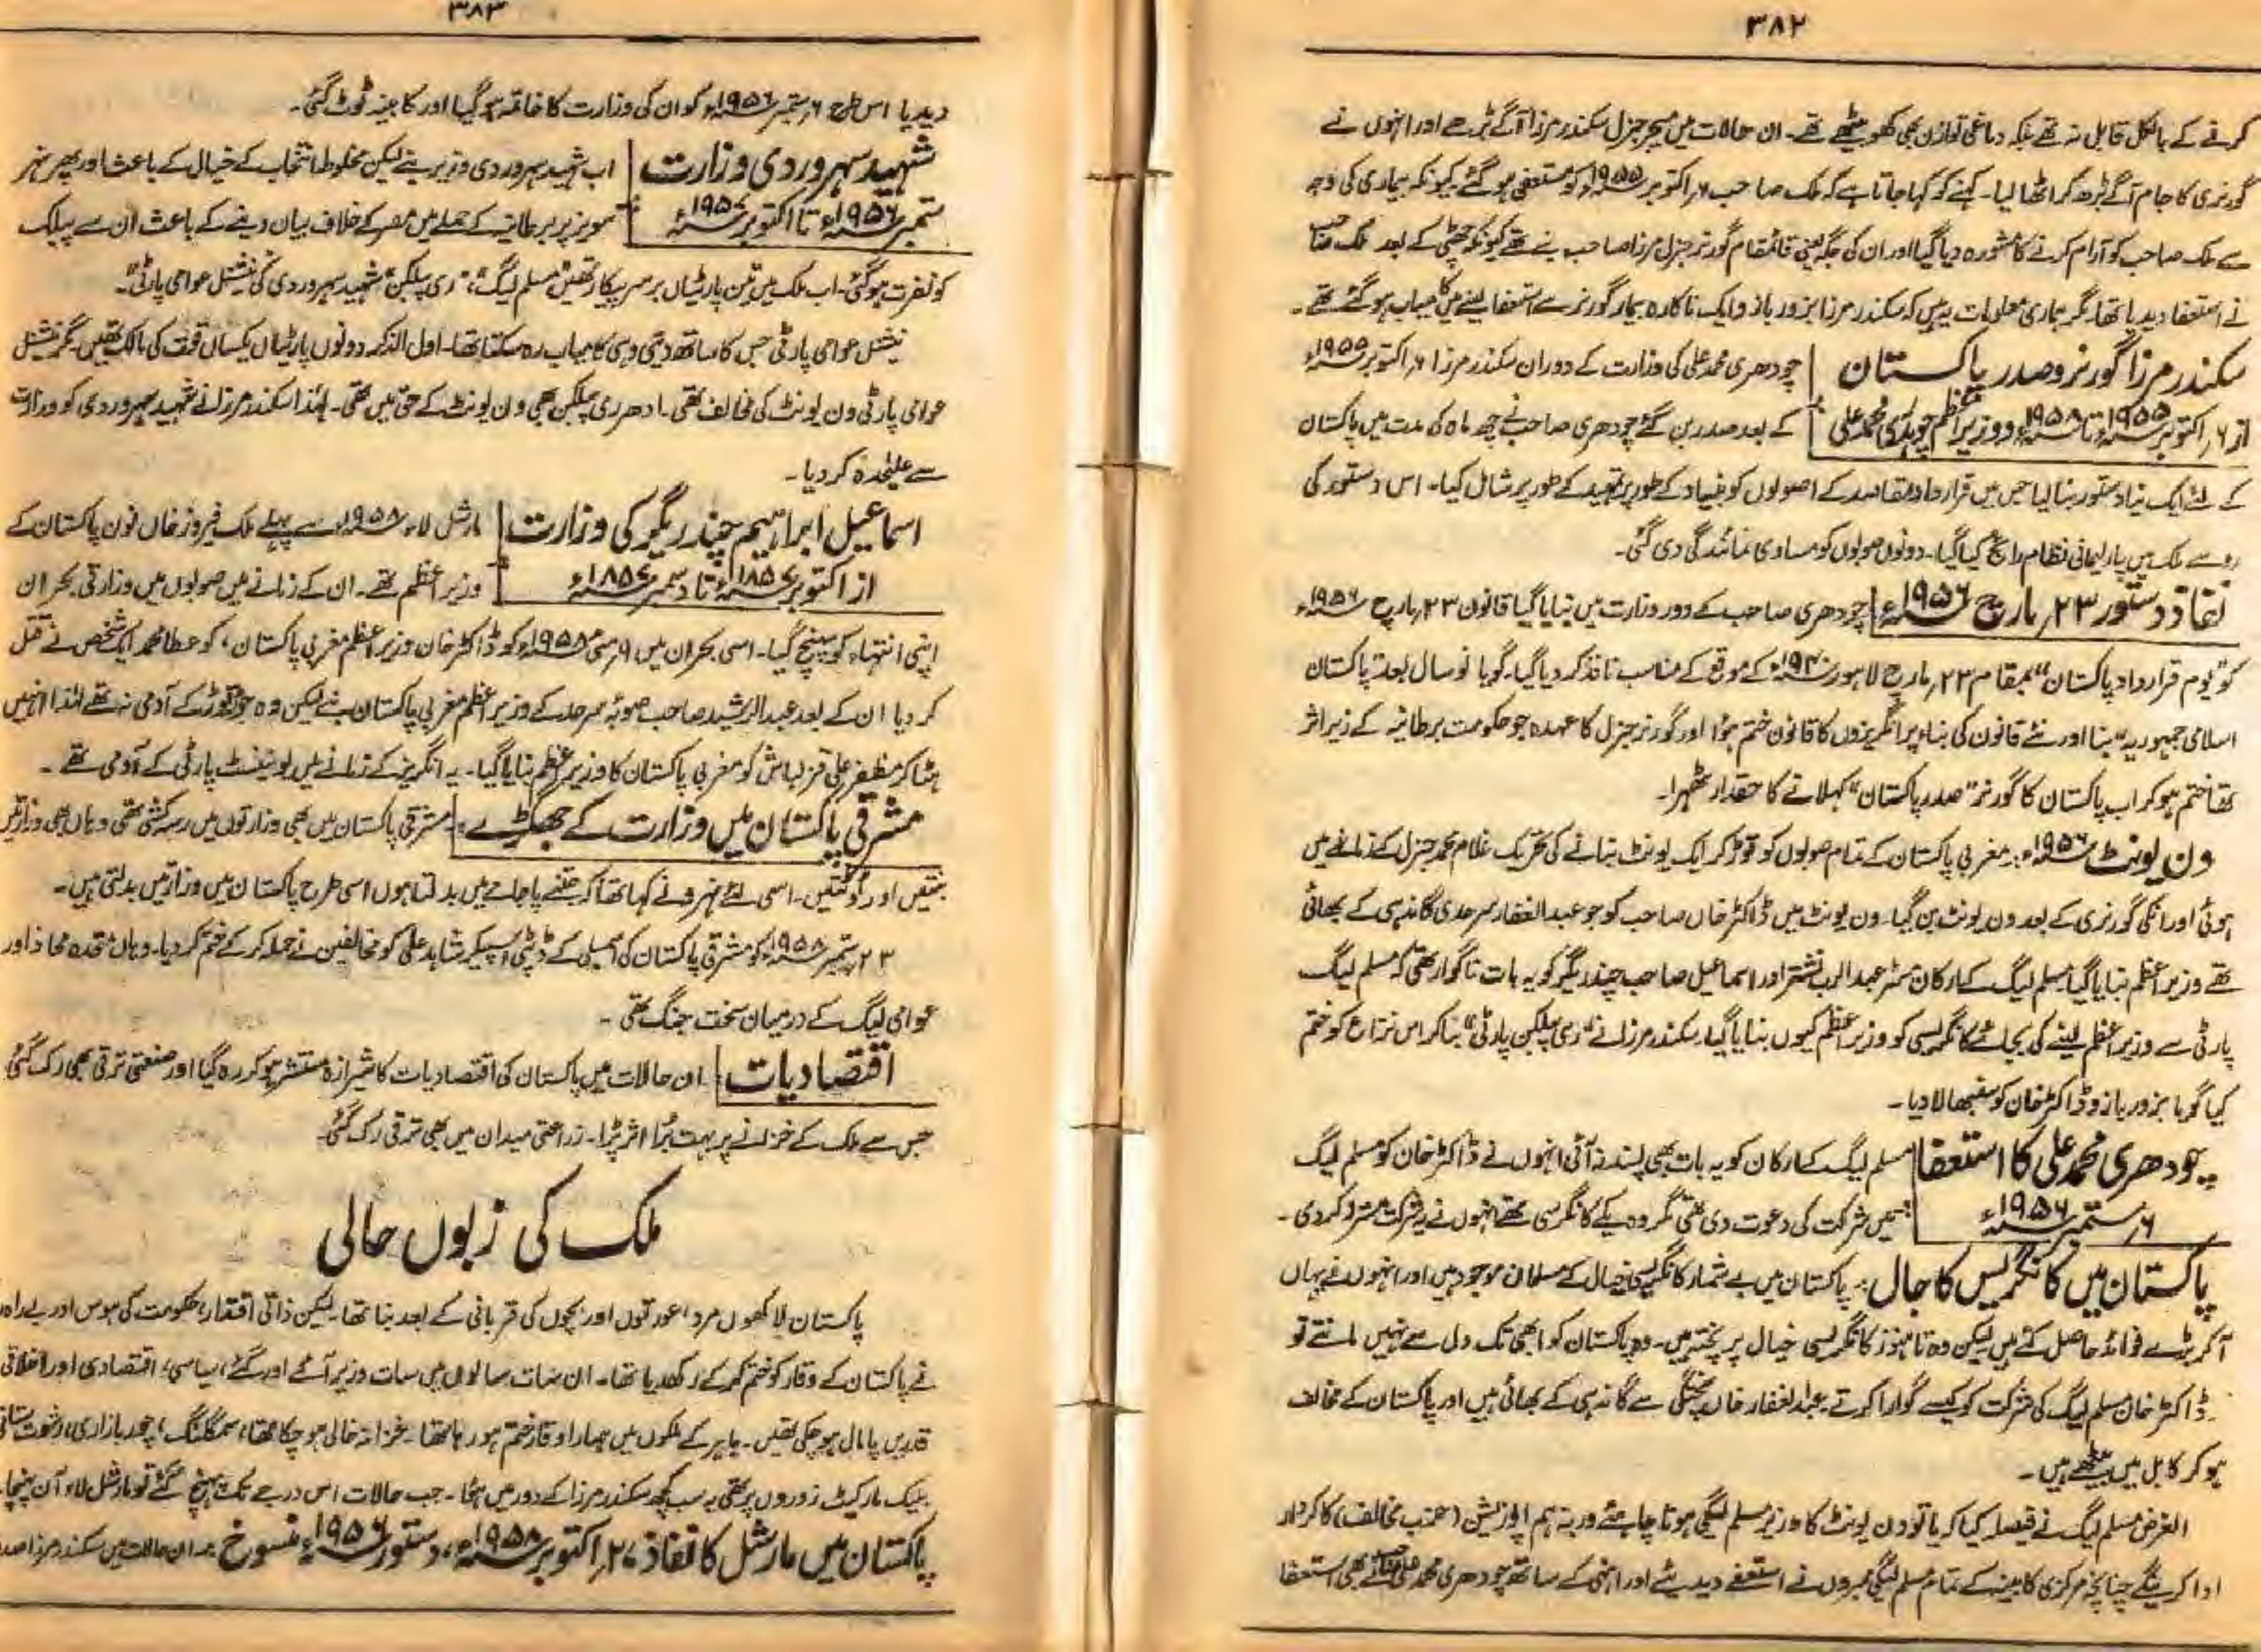 ۳۸۲
کرنے کے بالکل قابل نہ تھے بلکہ دماغی توازن بھی کھو بیٹھے تھے۔ ان حالات میں میجر جنرل سکندر مرزا آگے بڑھے اور انہوں نے
گورنری کا جام آگے بڑھ کر اٹھا لیا۔ کہنے کو کہا جاتا ہے کہ ملک صاحب ۶ اکتوبر ۱۹۵۵ء کو مستعفی ہو گئے کیونکہ بیماری کی وجہ
سے ملک صاحب کو آرام کرنے کا مشورہ دیا گیا اور ان کی جگہ یعنی قائمقام گورنر جنرل مرزا صاحب بنے تھے کیونکہ چھٹی کے بعد ملک صاحب
نے استعفا دیدیا تھا۔ مگر ہماری معلومات یہ ہیں کہ سکندر مرزا بزور بازو ایک ناکارہ بیمار گورنر سے استعفا لینے میں کامیاب ہو گئے تھے۔
سکندر مرزا گورنر و صدر پاکستان چودھری محمد علی کی وزارت کے دوران سکندر مرزا ۶ اکتوبر ۱۹۵۵ء
از ۶ اکتوبر ۱۹۵۵ء تا ۱۹۵۸ء و وزیر اعظم چوہدری محمد علی کے بعد صدر بن گئے چودھری صاحب نے چھ ماہ کی مدت میں پاکستان
کے لئے ایک نیا دستور بنا لیا جس میں قرارداد مقاصد کے اصولوں کو بنیاد کے طور پر تمہید کے طور پر شامل کیا۔ اس دستور کی
رو سے ملک میں پارلیمانی نظام رائج کیا گیا۔ دونوں صوبوں کو مساوی نمائندگی دی گئی۔
نفاذ دستور ۲۳ مارچ ۱۹۵۶ء چودھری صاحب کے دور وزارت میں بنایا گیا قانون ۲۳ مارچ ۱۹۵۶ء
کو "یوم قرارداد پاکستان" بمقام ۲۳ مارچ لاہور ۱۹۴۰ء کے موقع کے مناسب نافذ کر دیا گیا۔ گویا نو سال بعد "پاکستان
اسلامی جمہوریہ" بنا اور نئے قانون کی بناء پر انگریزوں کا قانون ختم ہوا اور گورنر جنرل کا عہدہ جو حکومت برطانیہ کے زیر اثر
تھا ختم ہو کر اب پاکستان کا گورنر "صدر پاکستان" کہلانے کا حقدار ٹھہرا۔
ون یونٹ ۱۹۵۶ء:۔ مغربی پاکستان کے تمام صوبوں کو توڑ کر ایک یونٹ بنانے کی تحریک غلام محمد جنرل کے زمانے میں
ہوئی اور انکی گورنری کے بعد ون یونٹ بن گیا۔ ون یونٹ میں ڈاکٹر خاں صاحب کو جو عبد الغفار سرحدی گاندہی کے بھائی
تھے وزیر اعظم بنایا گیا مسلم لیگ کے ارکان مسٹر عبد الرب نشتر اور اسماعیل صاحب چندریگر کو یہ بات ناگوار تھی کہ مسلم لیگ
پارٹی سے وزیر اعظم لینے کی بجائے کانگریسی کو وزیر اعظم کیوں بنایا گیا۔ سکندر مرزا نے "ری پبلکن پارٹی" بنا کر اس نزاع کو ختم
کیا گویا بزور بازو ڈاکٹر خان کو سنبھالا دیا۔
چودھری محمد علی کا استعفا مسلم لیگ کے ارکان کو یہ بات بھی پسند نہ آئی انہوں نے ڈاکٹر خان کو مسلم لیگ
۶ ستمبر ۱۹۵۶ء میں شرکت کی دعوت دی تھی مگر وہ پکے کانگرسی تھے انہوں نے یہ شرکت مسترد کر دی۔
پاکستان میں کانگریس کا جال:۔ پاکستان میں بے شمار کانگریسی خیال کے مسلمان موجود ہیں اور انہوں نے یہاں
آکر بڑے فوائد حاصل کئے ہیں لیکن وہ تا ہنوز کانگریسی خیال پر پختہ ہیں۔ وہ پاکستان کو ابھی تک دل سے نہیں مانتے تو
ڈاکٹر خان مسلم لیگ کی شرکت کو کیسے گوارا کرتے۔ عبد الغفار خاں پختگی سے گاندہی کے بھائی ہیں اور پاکستان کے مخالف
ہو کر کابل میں بیٹھے ہیں۔
الغرض مسلم لیگ نے فیصلہ کیا کہ یا تو ون یونٹ کا وزیر مسلم لیگی ہونا چاہئے ورنہ ہم اپوزیشن (حزب مخالف) کا کردار
ادا کرینگے چنانچہ مرکزی کابینہ کے تمام مسلم لیگی ممبروں نے استعفے دیدیئے اور انہی کے ساتھ چودھری محمد علی صاحب نے بھی استعفا
۳۸۳
دیدیا اس طرح ۶ ستمبر ۱۹۵۶ء کو ان کی وزارت کا خاتمہ ہو گیا اور کابینہ ٹوٹ گئی۔
شہید سہروردی وزارت اب شہید سہروردی وزیر بنے لیکن مخلوط انتخاب کے خیال کے باعث اور پھر نہر
ستمبر ۱۹۵۶ء تا اکتوبر ۱۹۵۷ء سویز پر برطانیہ کے حملے میں مصر کے خلاف بیان دینے کے باعث ان سے پبلک
کو نفرت ہو گئی۔ اب ملک میں تین پارٹیاں برسر پیکار تھیں "مسلم لیگ"، "ری پبلکن" شہید سہروردی کی نیشنل عوامی پارٹی"۔
نیشنل عوامی پارٹی جس کا ساتھ دیتی وہی کامیاب رہ سکتا تھا۔ اول الذکر دونوں پارٹیاں یکساں قوت کی مالک تھیں۔ مگر نیشنل
عوامی پارٹی ون یونٹ کی مخالف تھی۔ ادھر ری پبلکن بھی ون یونٹ کے حق میں تھی۔ لہٰذا سکندر مرزا نے شہید سہروردی کو وزارت
سے علیٰحدہ کر دیا۔
اسماعیل ابراہیم چندریگر کی وزارت مارشل لاء ۱۹۵۸ء سے پہلے ملک فیروز خاں نون پاکستان کے
از اکتوبر ۱۸۵۷ء تا دسمبر ۱۸۵۷ء وزیر اعظم تھے۔ ان کے زمانے میں صوبوں میں وزارتی بحران
اپنی انتہاء کو پہنچ گیا۔ اسی بحران میں ۹ مئی ۱۹۵۸ء کو ڈاکٹر خان وزیر اعظم مغربی پاکستان، کو عطا محمد ایک شخص نے قتل
کر دیا ان کے بعد عبد الرشید صاحب صوبہ سرحد کے وزیر اعظم مغربی پاکستان بنے لیکن وہ جوڑ توڑ کے آدمی نہ تھے لہٰذا انہیں
ہٹا کر مظفر علی قزلباش کو مغربی پاکستان کا وزیر اعظم بنایا گیا۔ یہ انگریز کے زمانے میں یونینسٹ پارٹی کے آدمی تھے۔
مشرقی پاکستان میں وزارت کے جھگڑے:۔ مشرقی پاکستان میں بھی وزارتوں میں رسہ کشی تھی وہاں بھی وزارتیں
بنتیں اور ٹوٹتیں۔ اسی لئے نہرو نے کہا تھا کہ جتنے پاجامے میں بدلتا ہوں اسی طرح پاکستان میں وزارتیں بدلتی ہیں۔
۲۳ ستمبر ۱۹۵۸ء کو مشرقی پاکستان کی اسمبلی کے ڈپٹی اسپیکر شاہد علی کو مخالفین نے حملہ کر کے ختم کر دیا۔ وہاں متحدہ محاذ اور
عوامی لیگ کے درمیان سخت جنگ تھی۔
اقتصادیات ان حالات میں پاکستان کی اقتصادیات کا شیرازہ منتشر ہو کر رہ گیا اور صنعتی ترقی بھی رک گئی
جس سے ملک کے خزانے پر بہت برا اثر پڑا۔ زراعتی میدان میں بھی ترقی رک گئی۔
ملک کی زبوں حالی
پاکستان لاکھوں مرد، عورتوں اور بچوں کی قربانی کے بعد بنا تھا۔ لیکن ذاتی اقتدار، حکومت کی ہوس اور بے راہ
نے پاکستان کے وقار کو ختم کر کے رکھدیا تھا۔ ان سات سالوں میں سات وزیر آئے اور گئے، سیاسی، اقتصادی اور اخلاقی
قدریں پامال ہو چکی تھیں۔ باہر کے ملکوں میں ہمارا وقار ختم ہو رہا تھا۔ خزانہ خالی ہو چکا تھا، سمگلنگ، چور بازاری، رشوت ستانی
بلیک مارکیٹ زوروں پر تھی یہ سب کچھ سکندر مرزا کے دور میں ہوا۔ جب حالات اس درجے تک پہنچ گئے تو مارشل لاء آن پہنچا۔
پاکستان میں مارشل کا نفاذ ۲۷ اکتوبر ۱۹۵۸ء، دستور ۱۹۵۶ء منسوخ:۔ ان حالات میں سکندر مرزا صدر